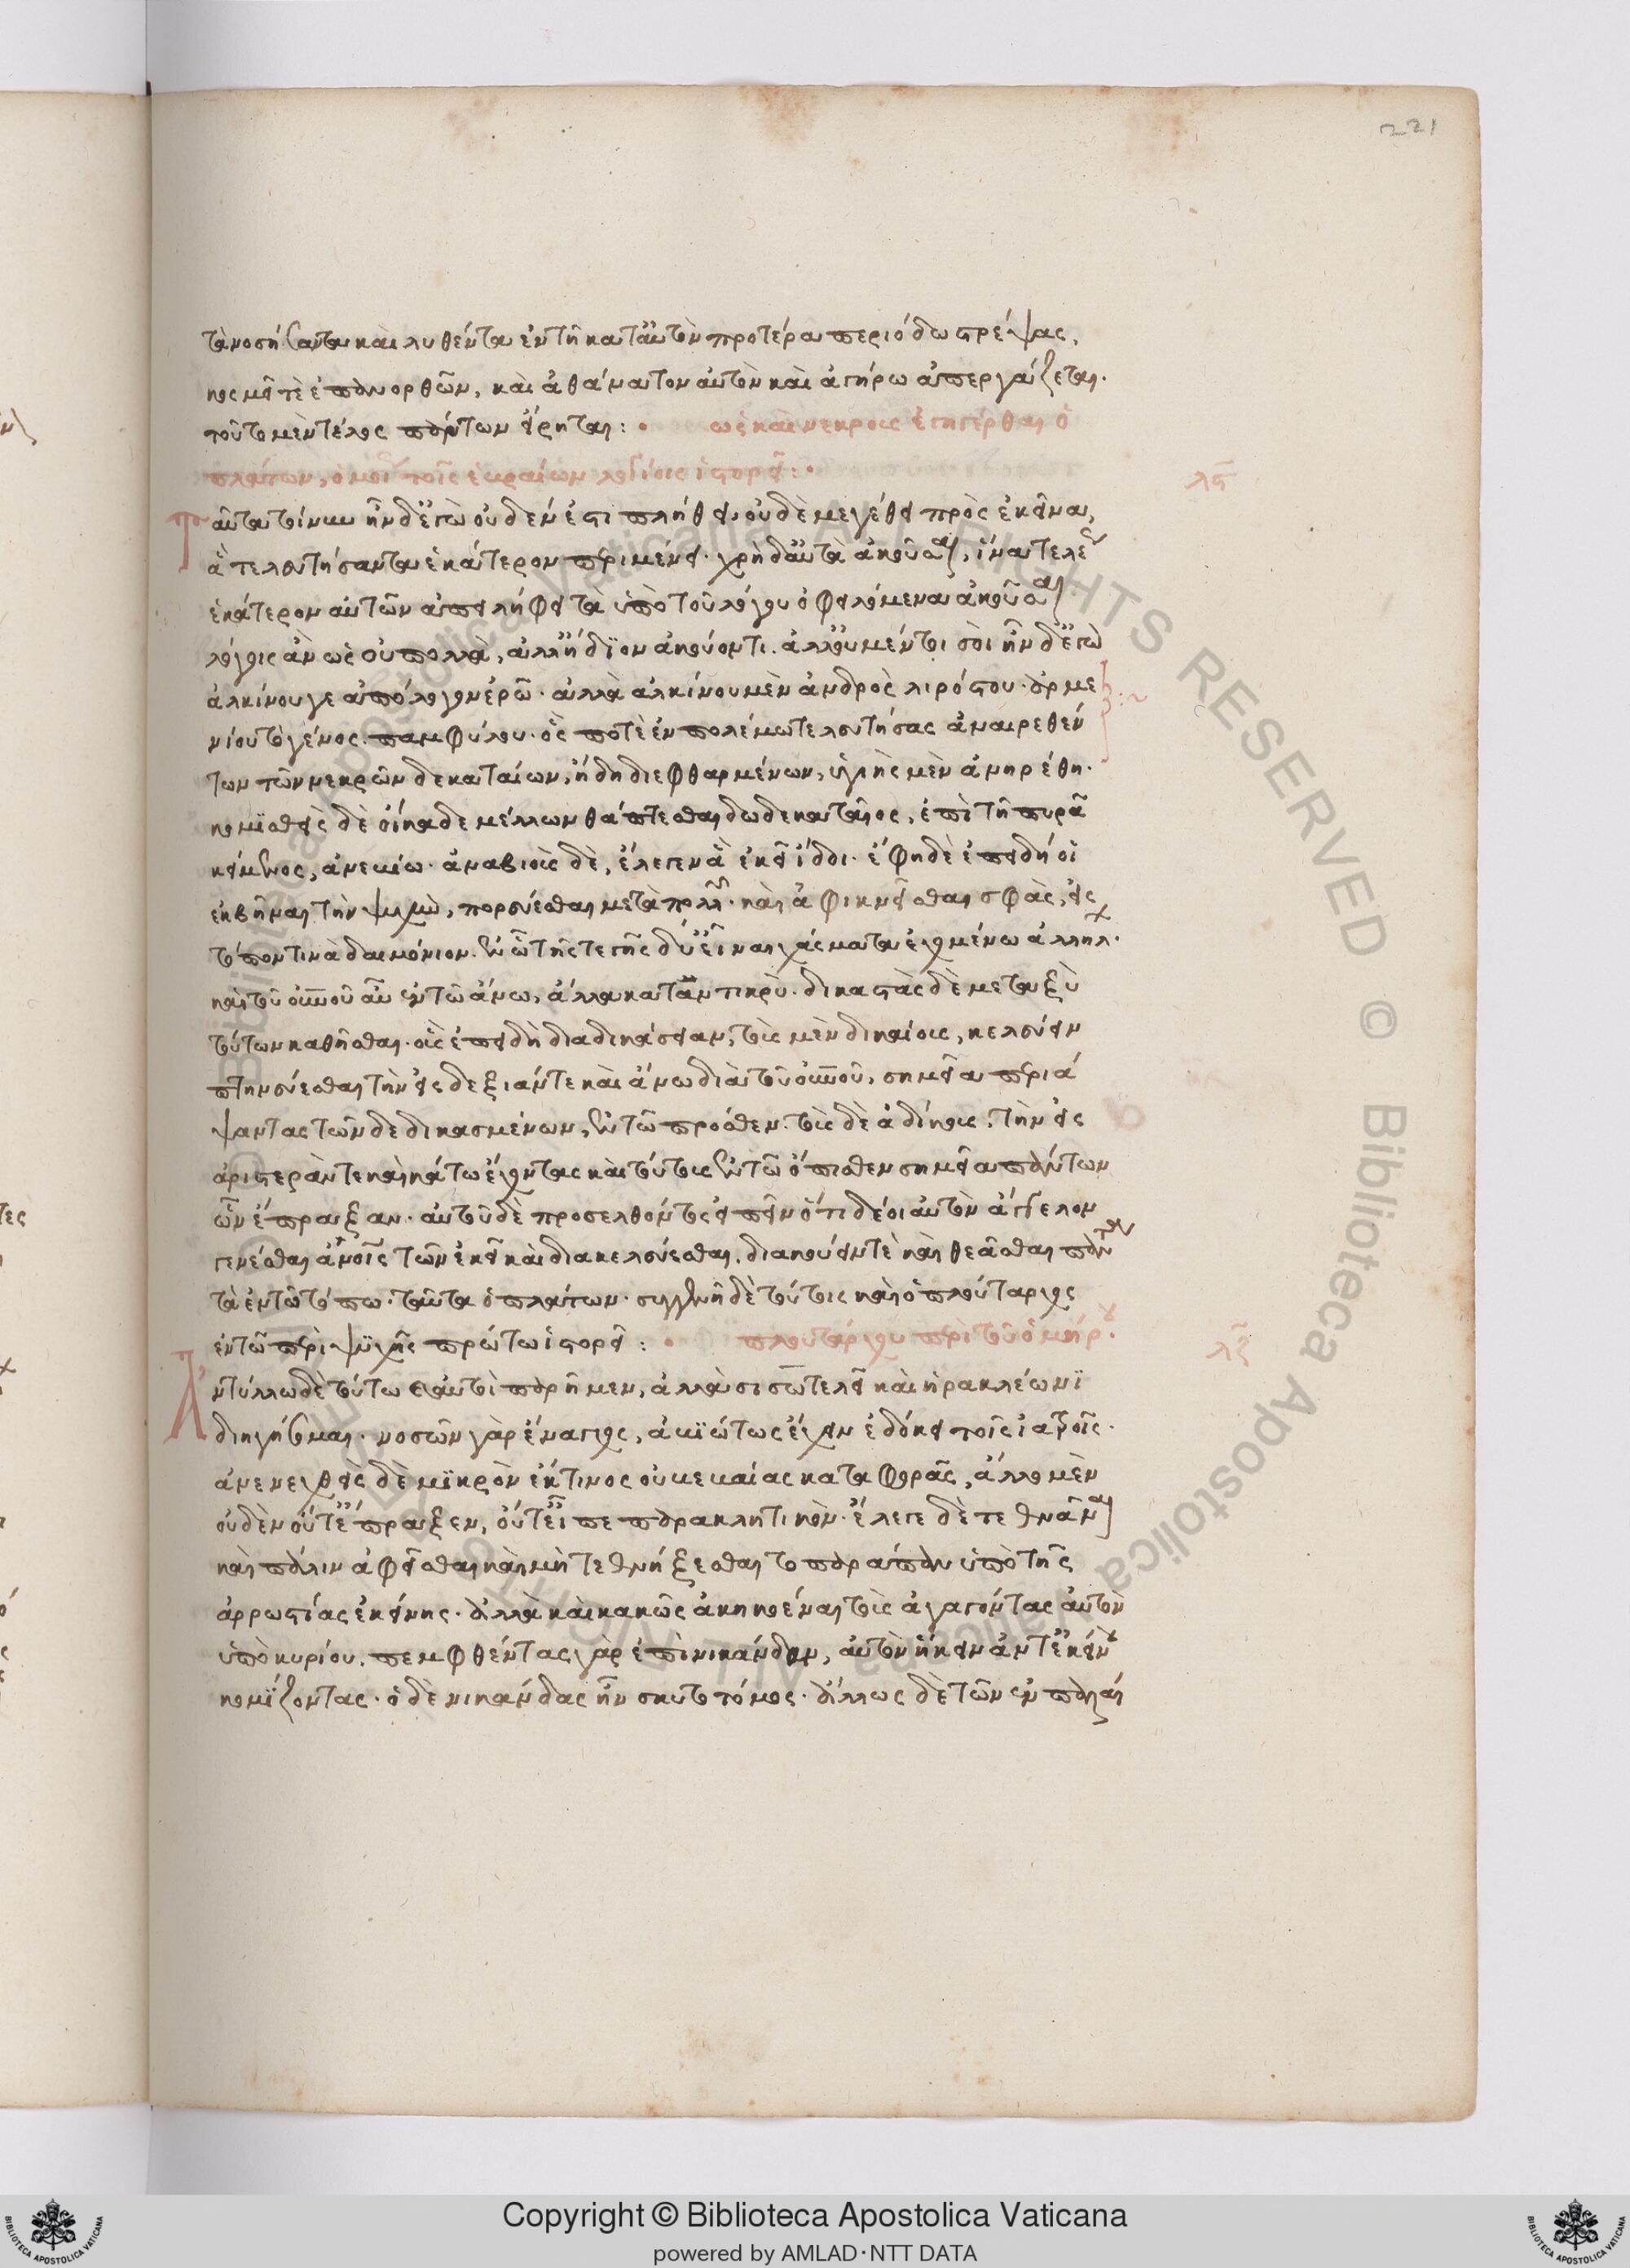 221
τὰ νοσήσαντα καὶ λυθέντα ἐν τῇ κατ' αὐτὸν προτέρα περιόδω στρέψας,
κοσμεῖ τὲ ἐπανορθῶν, καὶ ἀθάνατον αὐτὸν καὶ ἀγήρω ἀπεργάζεται.
τοῦτο μὲν τέλος ἁπάντων εἴρηται: • ὡς καὶ νεκροὺς ἐγηγέρθαι ὁ
πλάτων, ὁμοίως τοῖς ἑβραίων λογίοις ἱστορεῖ: • λς
Ταῦτα τοίνυν ἦν δ' ἐγὼ οὐδέν ἐστι πλήθει, οὐδὲ μεγέθει πρὸς ἐκεῖνα,
ἃ τελευτήσαντα ἑκάτερον περιμένει. χρὴ δ' αὐτὰ ἀκοῦσαι, ἵνα τελέως
ἑκάτερον αὐτῶν ἀπειλήφει τὰ ὑπὸ τοῦ λόγου ὀφειλόμενα ἀκοῦσαι
λέγοις ἂν ὡς οὐ πολλὰ, ἀλλ' ἥδϊον ἀκούοντι. ἀλλ' οὐ μέν τοι σοὶ ἦν δ' ἐγὼ
ἀλκίνου γε ἀπόλογον ἐρῶ. ἀλλὰ ἀλκίμου μὲν ἀνδρὸς ἠρὸς του ἀρμε
νίου τὸ γένος παμφύλου. ὅς ποτὲ ἐν πολέμω τελευτήσας ἀναιρεθέν
των τῶν νεκρῶν δεκαταίων, ἤδη διεφθαρμένων, ὑγιὴς μὲν ἀνηρέθη.
κομϊσθεὶς δὲ οἴκαδε μέλλων θάπτεσθαι δωδεκαταῖος, ἐπὶ τῇ πυρᾶ
κείμενος, ἀνεβίω. ἀναβιοὺς δὲ, ἔλεγεν ἃ ἐκεῖ ἴδοι. ἔφη δὲ ἐπειδή οἱ
ἐκβῆναι τὴν ψυχὴν, πορεύεσθαι μετὰ πολλῶν. καὶ ἀφικνεῖσθαι σφὰς, εἰς
τόπον τινὰ δαιμόνιον. ἐν ὧ τῆς τε γῆς δύ' εἶναι χάσματα ἐχομένω ἀλλήλων.
καὶ τοῦ οὐρανοῦ αὖ ἐν τῶ ἄνω, ἄλλα κατ' ἀντικρὺ. δικαστὰς δὲ μεταξὺ
τούτων καθῆσθαι. οὓς ἐπειδὴ διαδικάσειαν, τοὺς μὲν δικαίους, κελεύειν
πορεύεσθαι τὴν εἰς δεξιάν τε καὶ ἄνω διὰ τοῦ οὐρανοῦ, σημεῖα περιά
ψαντας τῶν δεδικασμένων, ἐν τῶ πρόσθεν. τοὺς δὲ ἀδίκους, τὴν εἰς
ἀριστεράν τε καὶ κάτω ἔχοντας καὶ τούτους ἐν τῶ ὄπισθεν σημεῖα πάντων
ὧν ἔπραξαν. αὐτοῦ δὲ προσελθόντος εἰπεῖν ὅτι δέοι αὐτὸν ἄγγελον
γενέσθαι ἀνοις τῶν ἐκεῖ καὶ διακελεύεσθαι. διακούειν τὲ καὶ θεᾶσθαι πάντα
τὰ ἐν τῶ τόπω. ταῦτα ὁ πλάτων. συγγενῆ δὲ τούτοις καὶ ὁ πλούταρχος
ἐν τῶ περὶ ψϋχῆς πρώτω ἱστορεῖ: • πλουτάρχου περὶ τοῦ ὁμοίου. λζ
Ἀντύλλω δὲ τούτω καὶ αὐτοὶ παρῆμεν, ἀλλὰ σισωτέλει καὶ ἡρακλέωνϊ
διηγήσομαι. νοσῶν γὰρ ἔναγχος, ἀβϊώτως ἔχειν ἐδόκει τοῖς ἰατροῖς.
ἀνενεχθεὶς δὲ μϊκρὸν ἔκ τινος οὐ βεβαίας καταφορᾶς, ἄλλο μὲν
οὐδὲν οὔτ' ἔπραξεν, οὔτ' εἶπε παρακλητικὸν. ἔλεγε δὲ τεθνᾶναι
καὶ πάλιν ἀφεῖσθαι καὶ μὴ τεθνήξεσθαι τοπαράπαν ὑπὸ τῆς
ἀρρωστίας ἐκείνης. ἀλλὰ καὶ κακῶς ἀκηκοέναι τοὺς ἀγαγόντας αὐτὸν
ὑπὸ κυρίου. πεμφθέντας γὰρ ἐπὶ νικάνδαν, αὐτὸν ἥκειν ἀντ' ἐκείνου
κομϊζοντας. ὁ δὲ νικάνδας ἦν σκυτοτόμος. ἄλλως δὲ τῶν ἐν παλαί
Copyright © Biblioteca Apostolica Vaticana
powered by AMLAD·NTT DATA